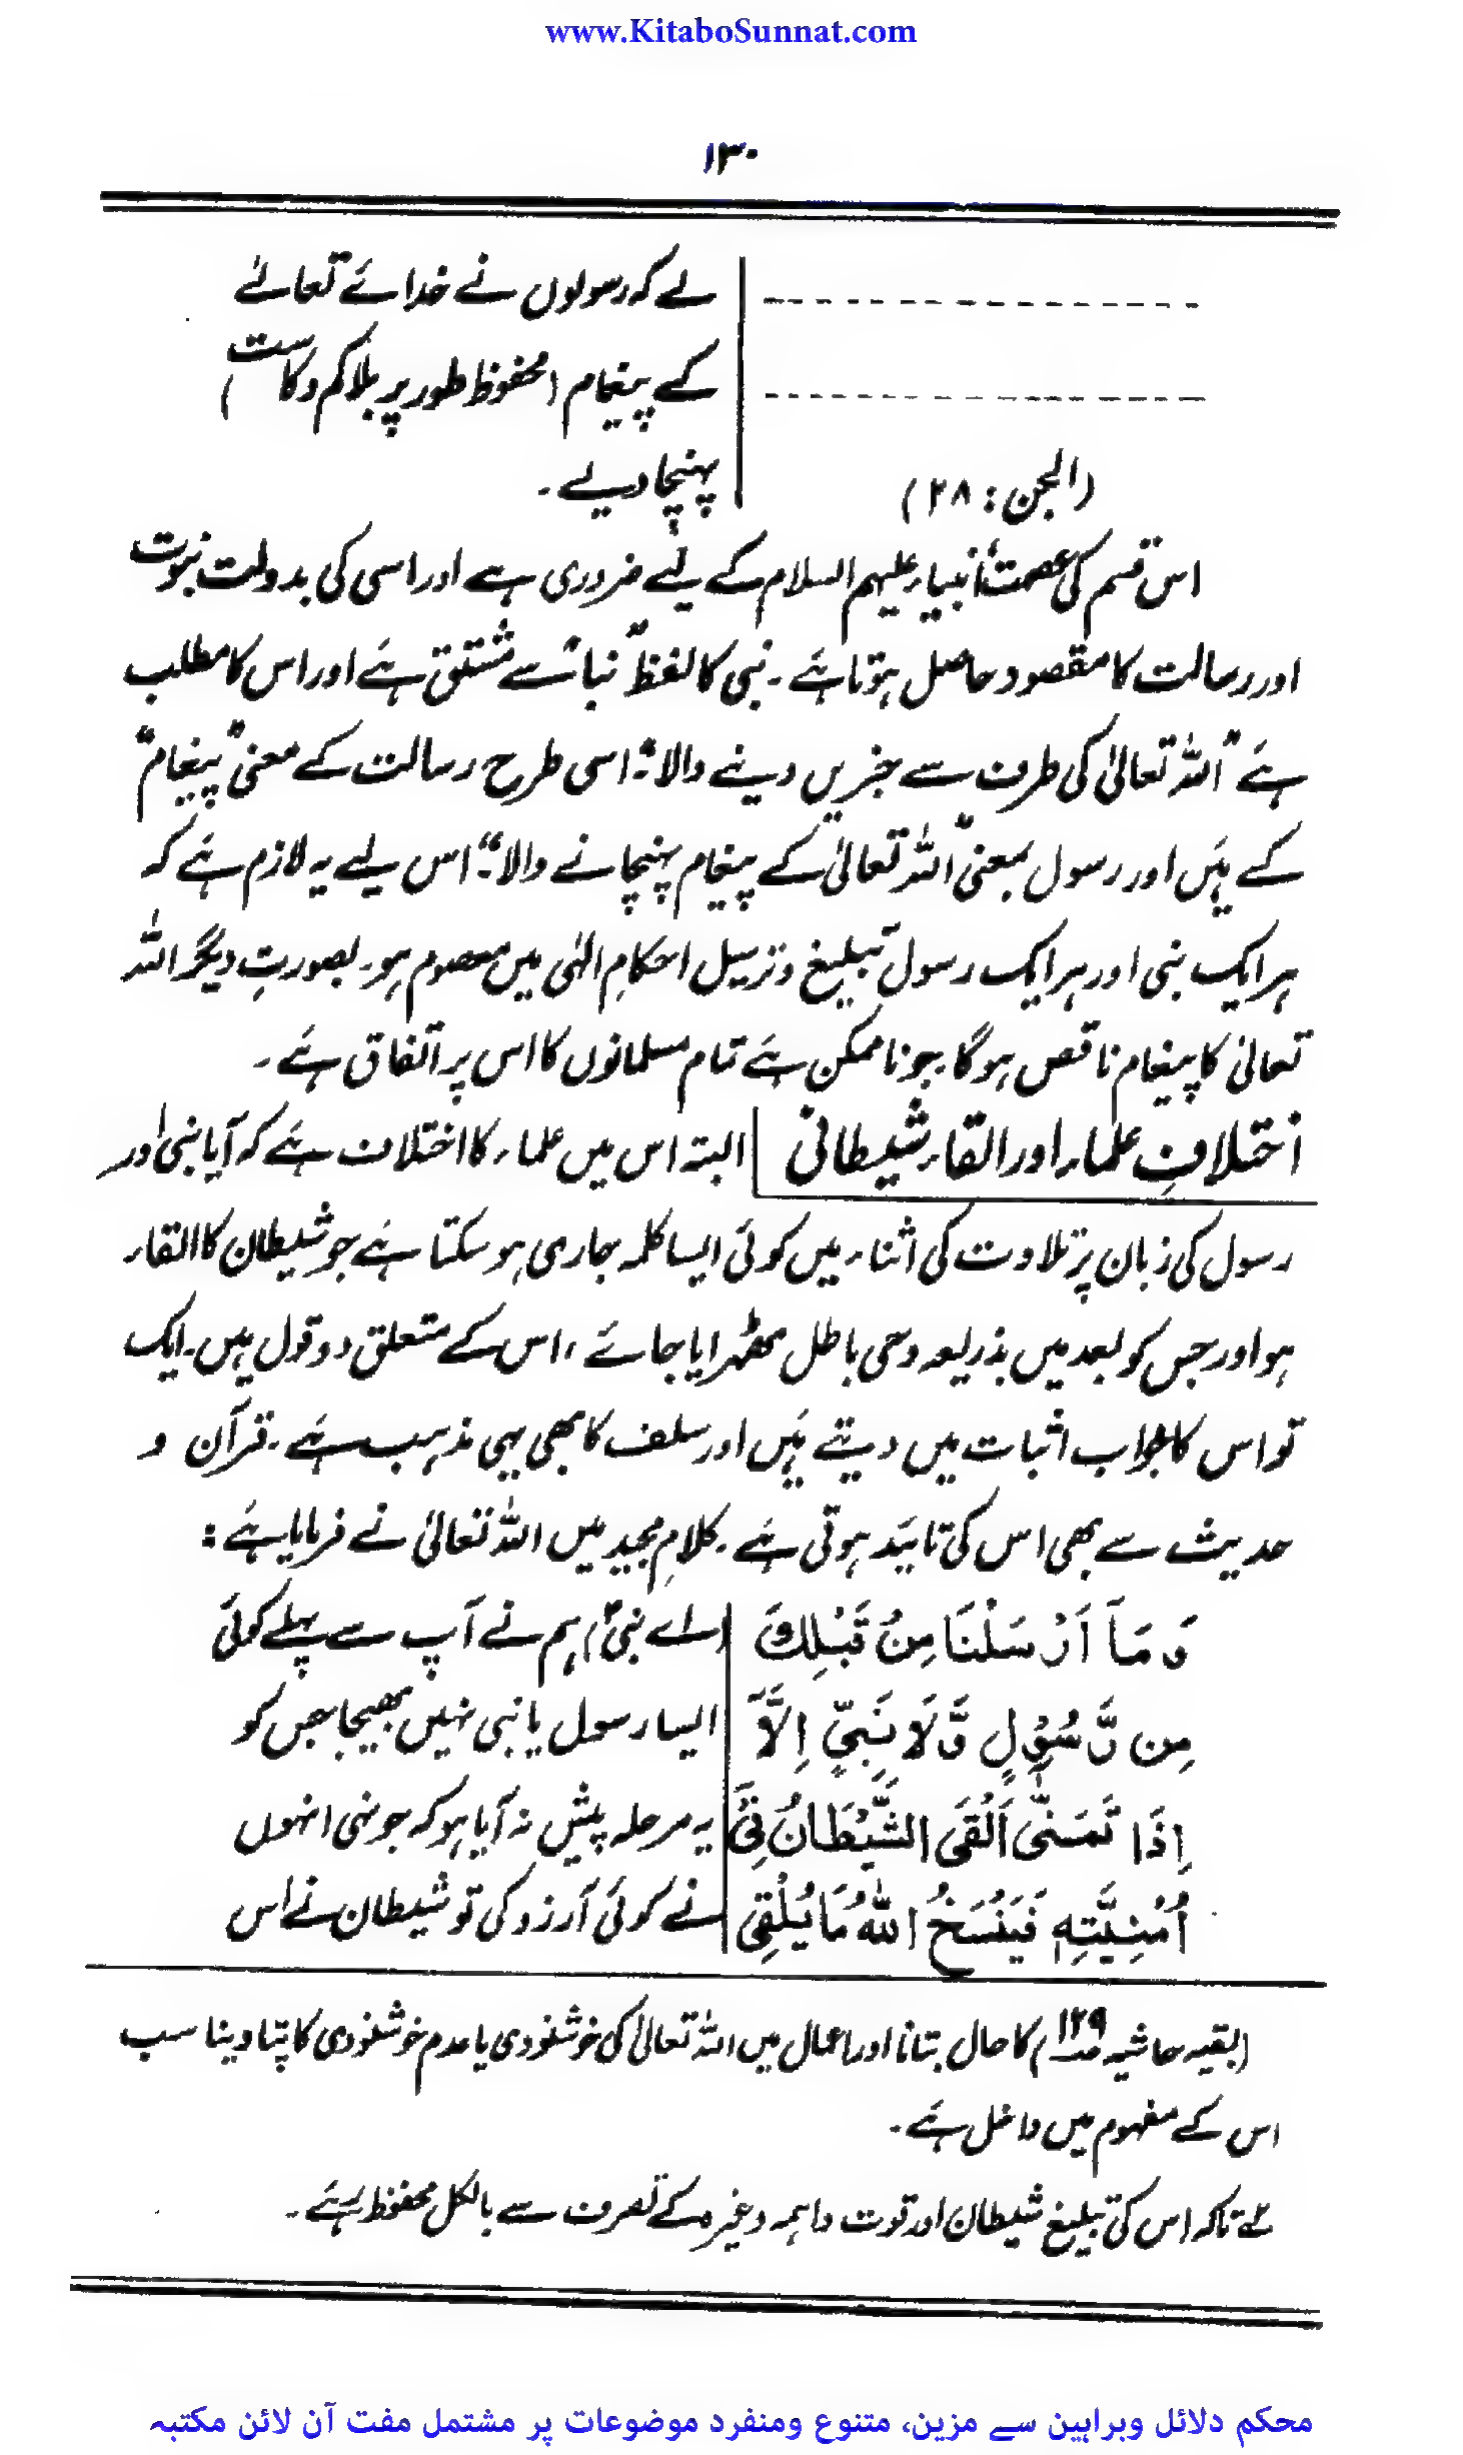 www.KitaboSunnat.com
۱۳۰
لے کہ رسولوں نے خدائے تعالےٰ
کے پیغام (محفوظ طور پر بلاکم وکاست)
(الجن: ۲۸)
پہنچا دیے۔
اس قسم کی عصمت انبیاء علیہم السلام کے لیے ضروری ہے اور اسی کی بدولت نبوت
اور رسالت کا مقصود حاصل ہوتا ہے۔ نبی کا لفظ "نبا" سے مشتق ہے اور اس کا مطلب
ہے "اللہ تعالیٰ کی طرف سے خبریں دینے والا"۔ اسی طرح رسالت کے معنی "پیغام"
کے ہیں اور رسول بمعنی "اللہ تعالیٰ کے پیغام پہنچانے والا"۔ اس لیے یہ لازم ہے کہ
ہر ایک نبی اور ہر ایک رسول تبلیغ و ترسیل احکامِ الہٰی میں معصوم ہو۔ بصورتِ دیگر اللہ
تعالیٰ کا پیغام ناقص ہوگا۔ جو ناممکن ہے تمام مسلمانوں کا اس پر اتفاق ہے۔
اختلافِ علماء اور القاء شیطانی
البتہ اس میں علماء کا اختلاف ہے کہ آیا نبی اور
رسول کی زبان پر تلاوت کی اثناء میں کوئی ایسا کلمہ جاری ہو سکتا ہے جو شیطان کا القاء
ہو اور جس کو بعد میں بذریعہ وحی باطل ٹھہرایا جائے، اس کے متعلق دو قول ہیں۔ ایک
تو اس کا جواب اثبات میں دیتے ہیں اور سلف کا بھی یہی مذہب ہے۔ قرآن و
حدیث سے بھی اس کی تائید ہوتی ہے۔ کلامِ مجید میں اللہ تعالیٰ نے فرمایا ہے:
وَمَآ اَرْسَلْنَا مِنْ قَبْلِكَ
مِن رَّسُوْلٍ وَّلَا نَبِيٍّ اِلَّآ
اِذَا تَمَنّٰىٓ اَلْقَى الشَّيْطَانُ فِىْٓ
اُمْنِيَّتِهٖ فَيَنْسَخُ اللّٰهُ مَا يُلْقِى
(اے نبیؐ) ہم نے آپ سے پہلے کوئی
ایسا رسول یا نبی نہیں بھیجا جس کو
یہ مرحلہ پیش نہ آیا ہو کہ جونہی انہوں
نے کوئی آرزو کی تو شیطان نے اس
(بقیہ حاشیہ صہ ۱۲۹) کا حال بتانا اور اعمال میں اللہ تعالیٰ کی خوشنودی یا عدم خوشنودی کا پتا دینا سب
اس کے مفہوم میں داخل ہے۔
تاکہ اس کی تبلیغ شیطان اور قوت واہمہ وغیرہ کے تصرف سے بالکل محفوظ رہے۔
محکم دلائل وبراہین سے مزین، متنوع ومنفرد موضوعات پر مشتمل مفت آن لائن مکتبہ